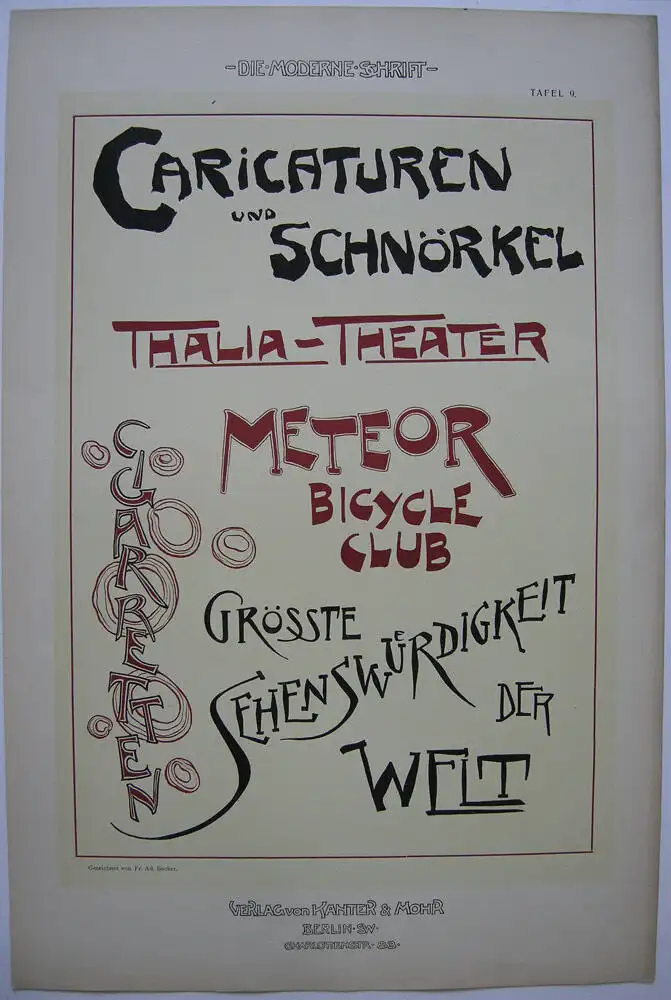 -DIE·MODERNE·SCHRIFT-
TAFEL 9.
CARICATUREN
UND
SCHNÖRKEL
THALIA-THEATER
METEOR
BICYCLE
CLUB
CIGARRETTEN
GRÖSSTE
SEHENSWUERDIGKEIT
DER
WELT
Gezeichnet von Fr. Ad. Becker.
VERLAG von KANTER & MOHR
BERLIN·SW·
CHARLOTTENSTR·83·